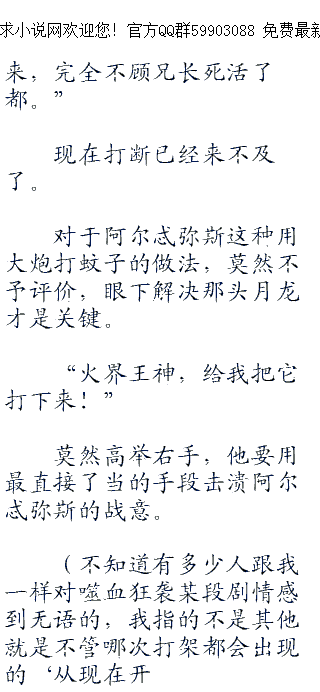 求小说网欢迎您！官方QQ群59903088 免费最新
来，完全不顾兄长死活了
都。”
现在打断已经来不及
了。
对于阿尔忒弥斯这种用
大炮打蚊子的做法，莫然不
予评价，眼下解决那头月龙
才是关键。
“火界王神，给我把它
打下来！”
莫然高举右手，他要用
最直接了当的手段击溃阿尔
忒弥斯的战意。
（不知道有多少人跟我
一样对噬血狂袭某段剧情感
到无语的，我指的不是其他
就是不管哪次打架都会出现
的‘从现在开